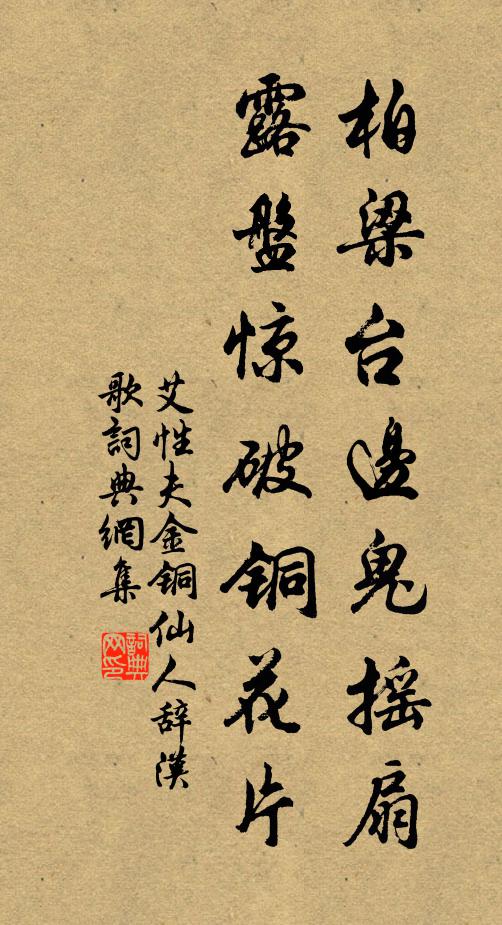 柏梁台邊鬼摇扇
露盤惊破铜花片
艾性夫金铜仙人辞漢
歌詞典網集
詞典网印